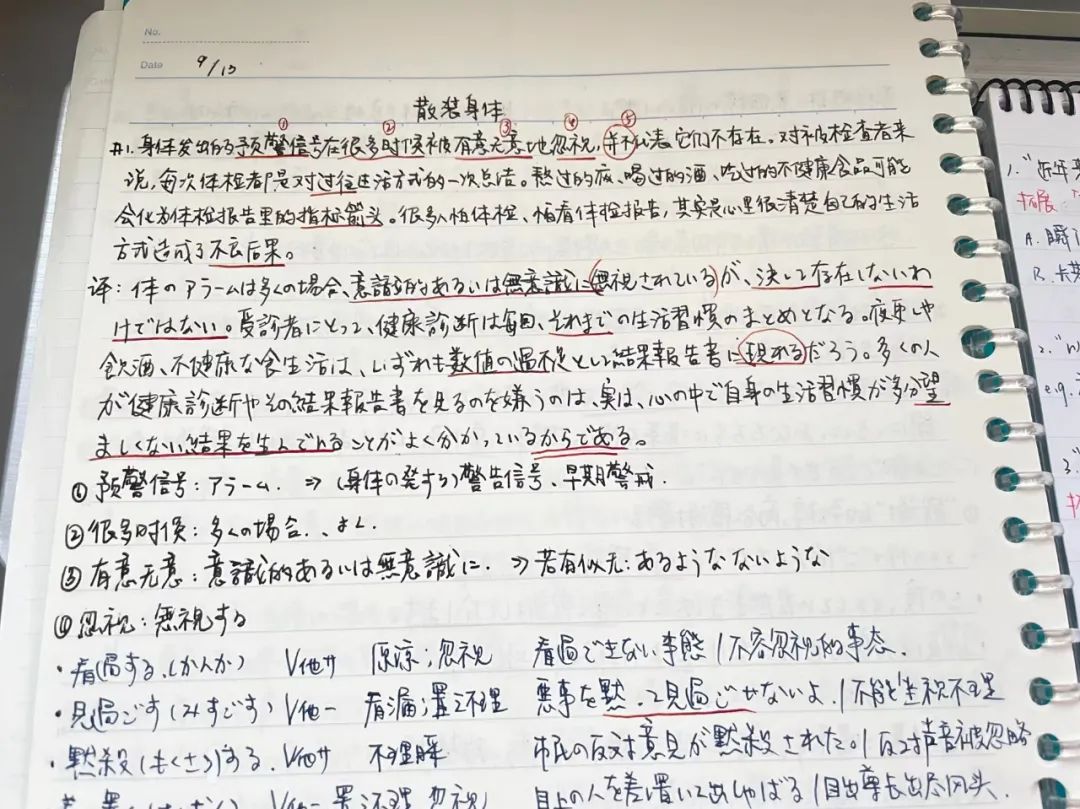 No.
Date 9/13
散装身体
① ② ③ ④ ⑤
#1. 身体发出的预警信号在很多时候被有意无意地忽视，并不代表它们不存在。对被检查者来
说，每次体检都是对过往生活方式的一次总结。熬过的夜、喝过的酒、吃过的不健康食品可能
会化为体检报告里的指标箭头。很多人怕体检、怕看体检报告，其实是心里很清楚自己的生活
方式造成了不良后果。
译：体のアラームは多くの場合、意識的あるいは無意識に（無視されている）が、決して存在しないわ
けではない。受診者にとって、健康診断は毎回、それまでの生活習慣のまとめとなる。夜更しや
飲酒、不健康な食生活は、いずれも数値の過不足という結果報告書に現れるだろう。多くの人
が健康診断やその結果報告書を見るのを嫌うのは、実は、心の中で自身の生活習慣が多分望
ましくない結果を生んでいることがよく分かっているからである。
①预警信号：アラーム. ⇒ (身体の発する)警告信号、早期警戒.
②很多时候：多くの場合、よく.
③有意无意：意識的あるいは無意識に. ⇒若有似无：あるようなないような
④忽视：無視する
・看過する(かんか) V他サ 原谅；忽视 看過できない事態 / 不容忽视的事态.
・見過ごす(みすごす) V他一 看漏；置之不理 悪事を黙って見過ごせないよ. / 不能坐视不理
・黙殺(もくさつ)する. V他サ 不理睬 市民の反対意見が黙殺された。/ 反对声音被忽略
V他一 置之不理 忽视 目上の人を差し置いて出しゃばる / 目出尊长出尽风头.
1. "近年来
拓展
A. 瞬
2. "W
e.g.
3.